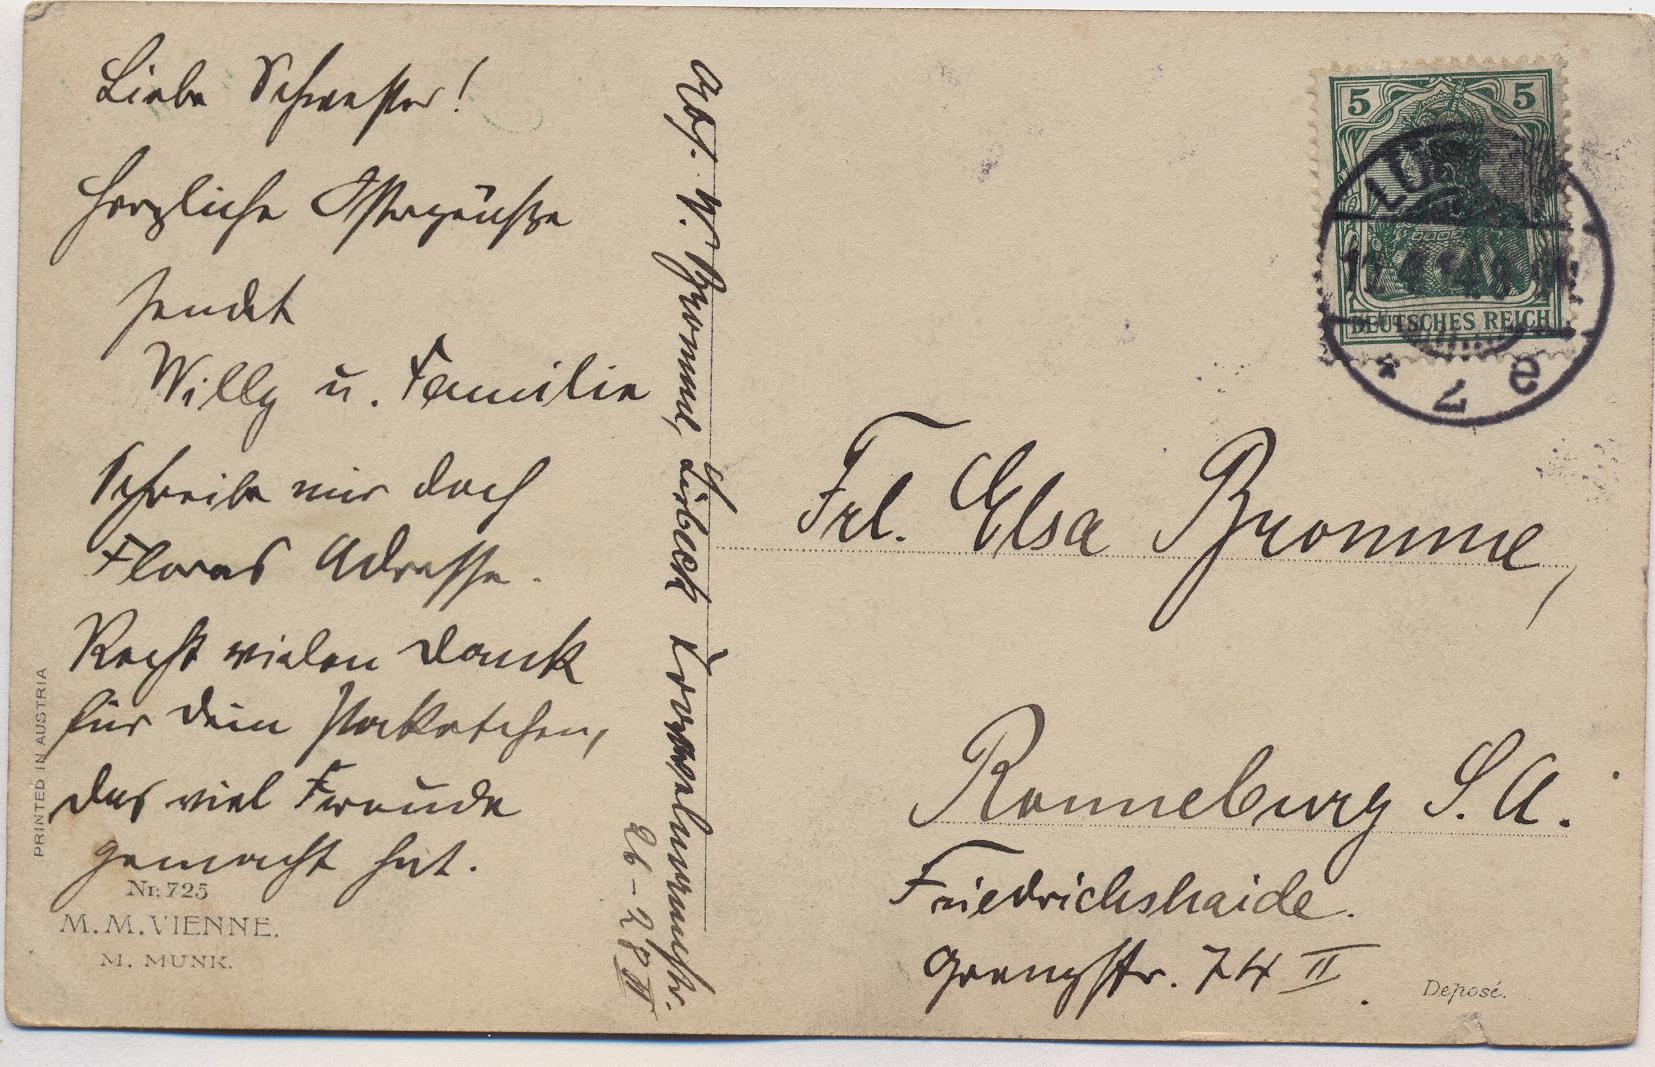 Liebe Schwester!
Herzliche Ostergrüße
sendet
Willy u. Familie
Schreibe mir doch
Floras Adresse.
Recht vielen Dank
für dein Paketchen,
das viel Freude
gemacht hat.
Nr. 725
M. M. VIENNE.
M. MUNK.
PRINTED IN AUSTRIA
Abs. W. Bromme, Lübeck
26-28 II
5 5
DEUTSCHES REICH
Frl. Elsa Bromme,
Ronneburg S. A.
Friedrichshaide.
Grenzstr. 74 II.
Deposé.